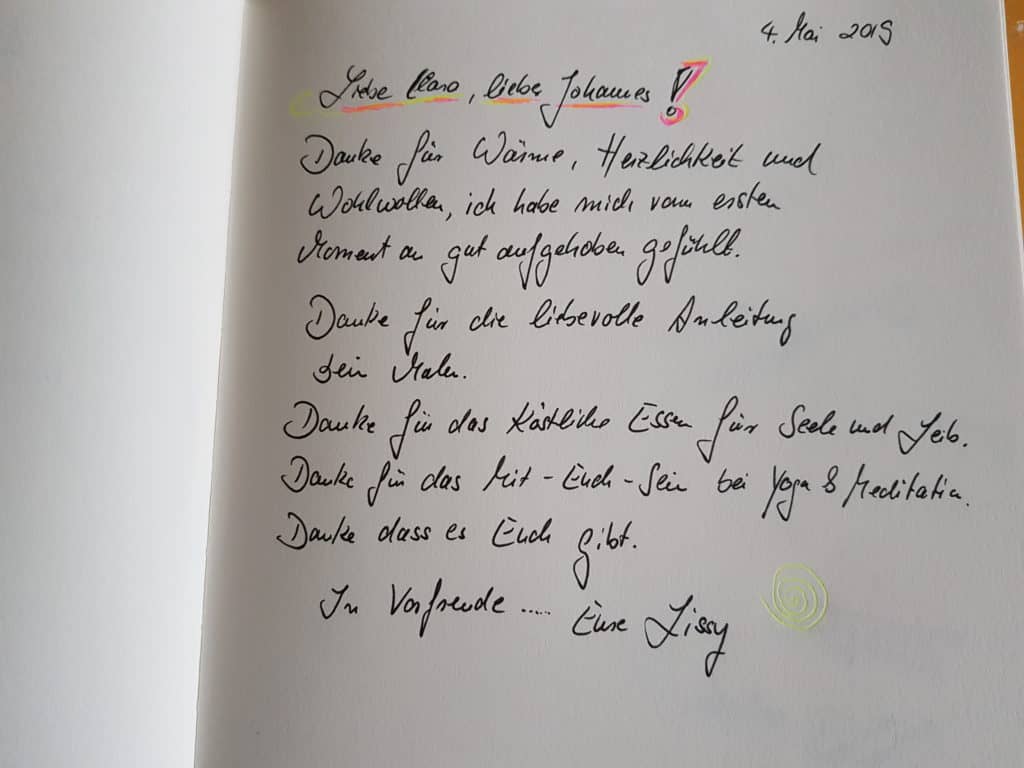 4. Mai 2019
Liebe Caro, liebe Johannes!
Danke für Wärme, Herzlichkeit und
Wohlwollen, ich habe mich vom ersten
Moment an gut aufgehoben gefühlt.
Danke für die liebevolle Anleitung
beim Malen.
Danke für das köstliche Essen für Seele und Leib.
Danke für das Mit-Euch-Sein bei Yoga & Meditation.
Danke dass es Euch gibt.
In Vorfreude ..... Eure Lissy